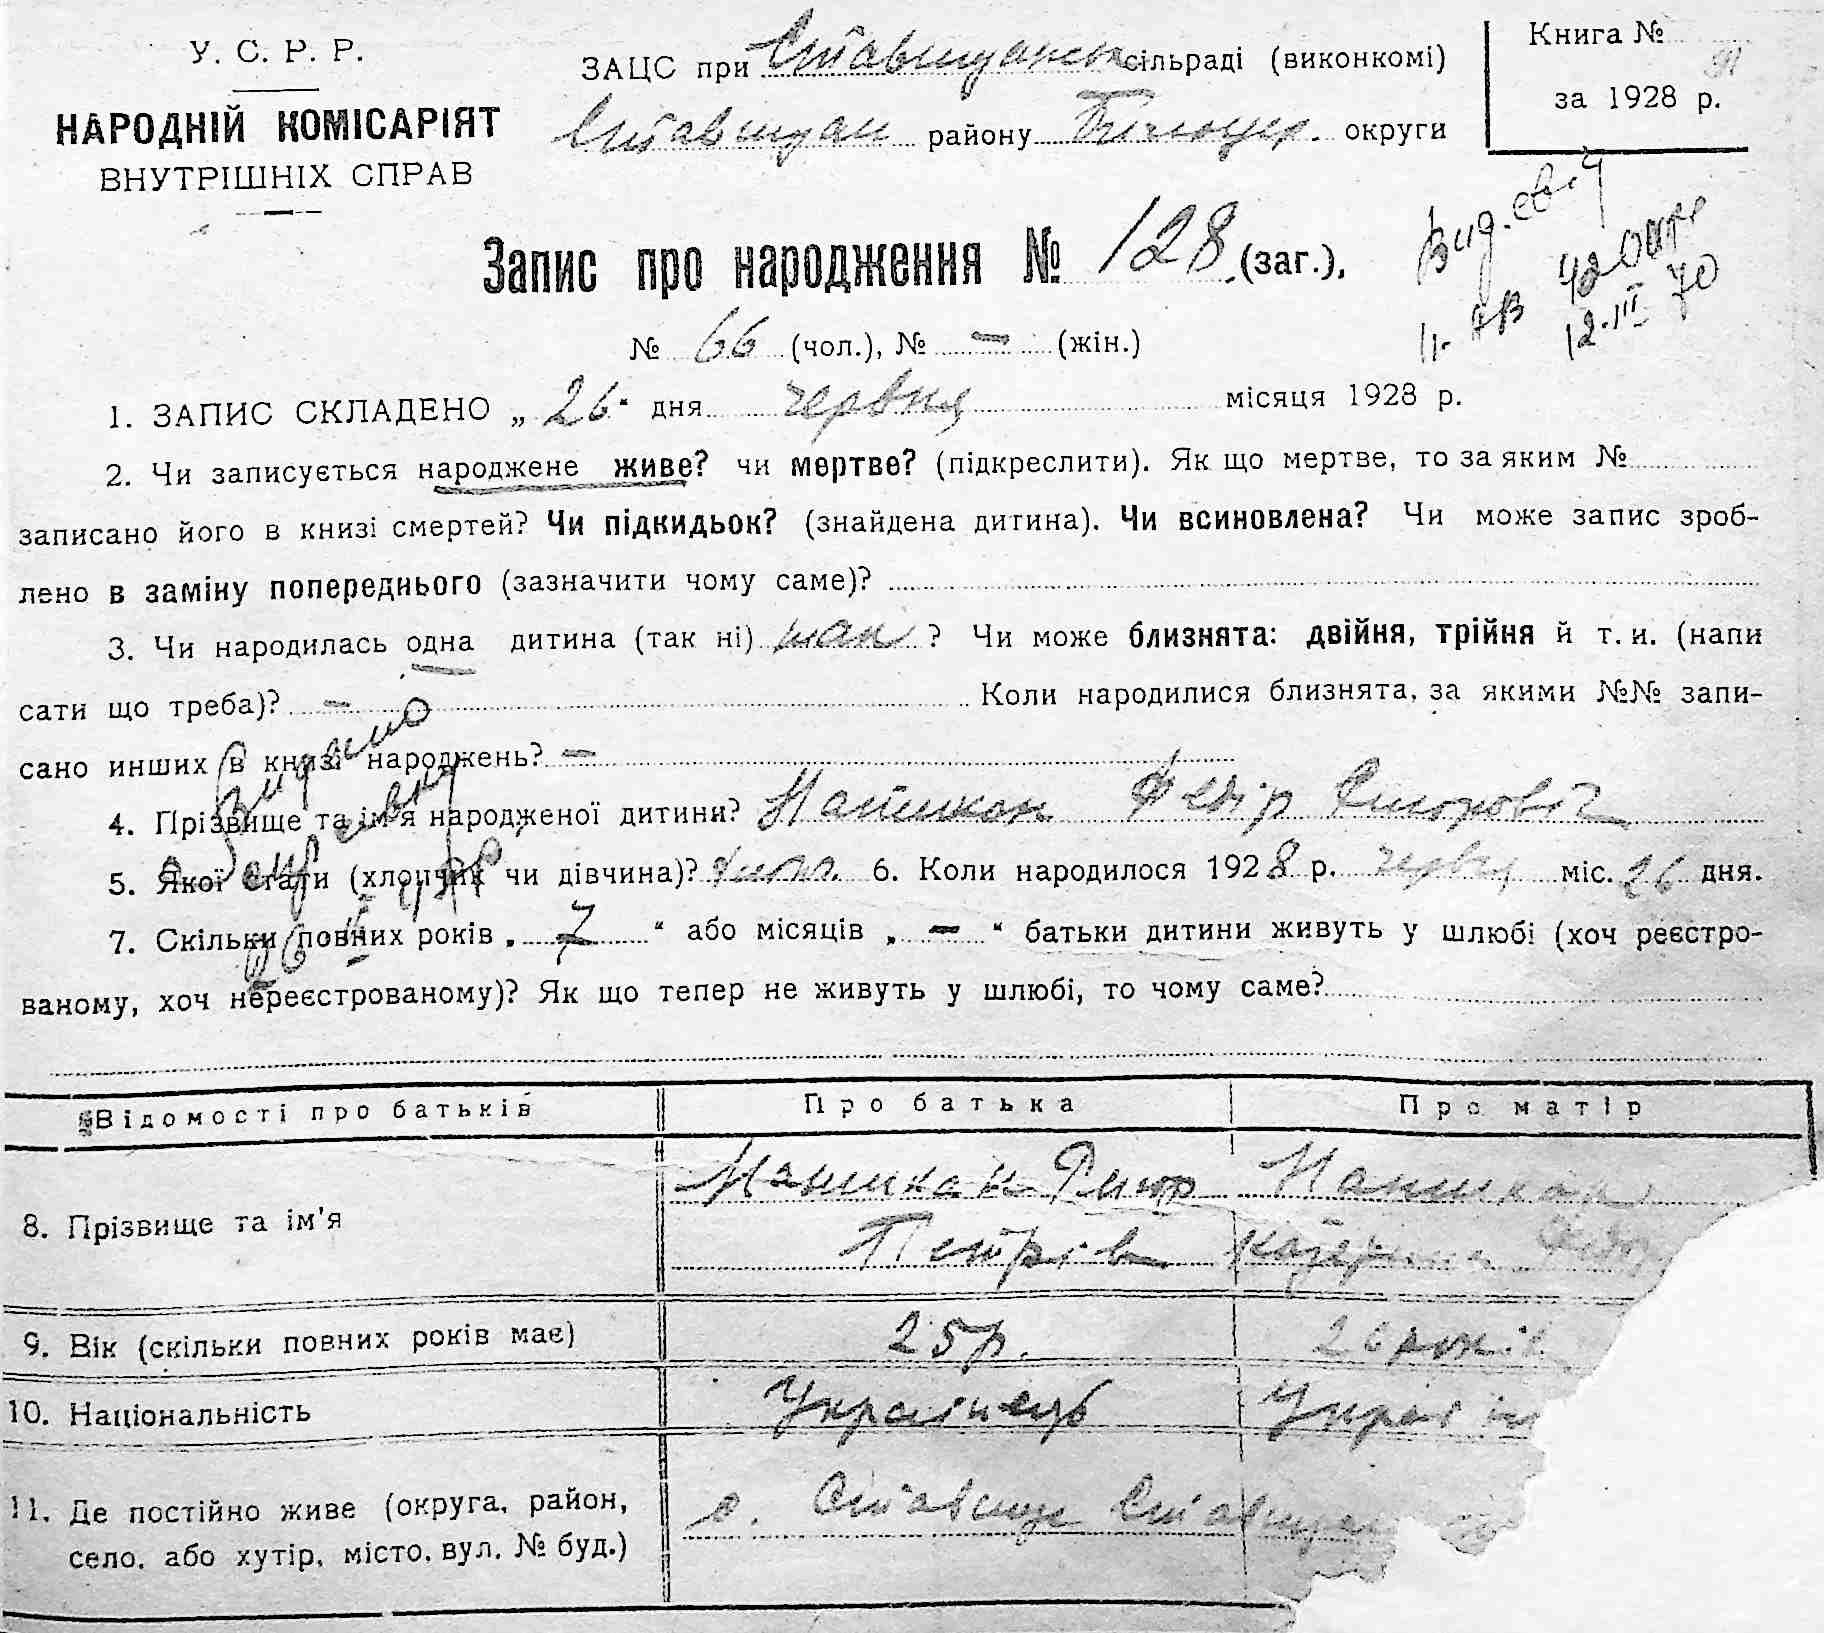 У. С. Р. Р.
НАРОДНІЙ КОМІСАРІЯТ
ВНУТРІШНІХ СПРАВ
ЗАЦС при Ставищанск сільраді (виконкомі)
Ставищан району Білоцер. округи
Книга №
за 1928 р.
Запис про народження № 128 (заг.),
№ 66 (чол.), № – (жін.)
12.III 70
1. ЗАПИС СКЛАДЕНО „ 26 “ дня червня місяця 1928 р.
2. Чи записується народжене живе? чи мертве? (підкреслити). Як що мертве, то за яким №
записано його в книзі смертей? Чи підкидьок? (знайдена дитина). Чи всиновлена? Чи може запис зроб-
лено в заміну попереднього (зазначити чому саме)?
3. Чи народилась одна дитина (так ні) так ? Чи може близнята: двійня, трійня й т. и. (напи
сати що треба)? – Коли народилися близнята, за якими №№ запи-
сано инших в книзі народжень? –
Видано
4. Прізвище та ім'я народженої дитини? Федір
5. Якої статі (хлопчик чи дівчина)? 6. Коли народилося 1928 р. червня міс. 26 дня.
7. Скільки повних років „ 7 “ або місяців „ – “ батьки дитини живуть у шлюбі (хоч реєстро-
ваному, хоч нереєстрованому)? Як що тепер не живуть у шлюбі, то чому саме?
Відомості про батьків Про батька Про матір
8. Прізвище та ім'я
Петрів Катерина
9. Вік (скільки повних років має) 25 р. 26 років
10. Національність Українець
11. Де постійно живе (округа, район,
село, або хутір, місто, вул. № буд.)
с. Ставище Ставищан